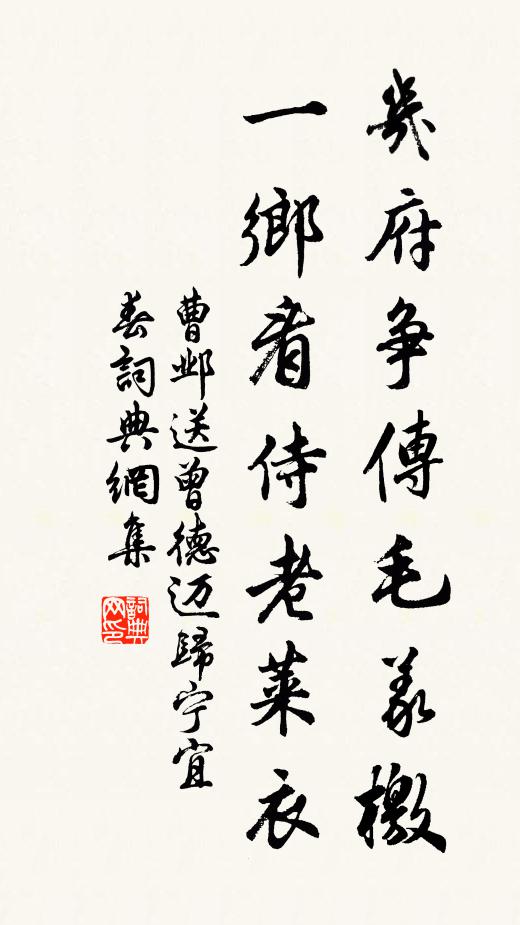 幾府争傳毛義檄
一鄉看侍老萊衣
曹邺送曾德迈歸宁宜
春詞典網集
詞典
网印